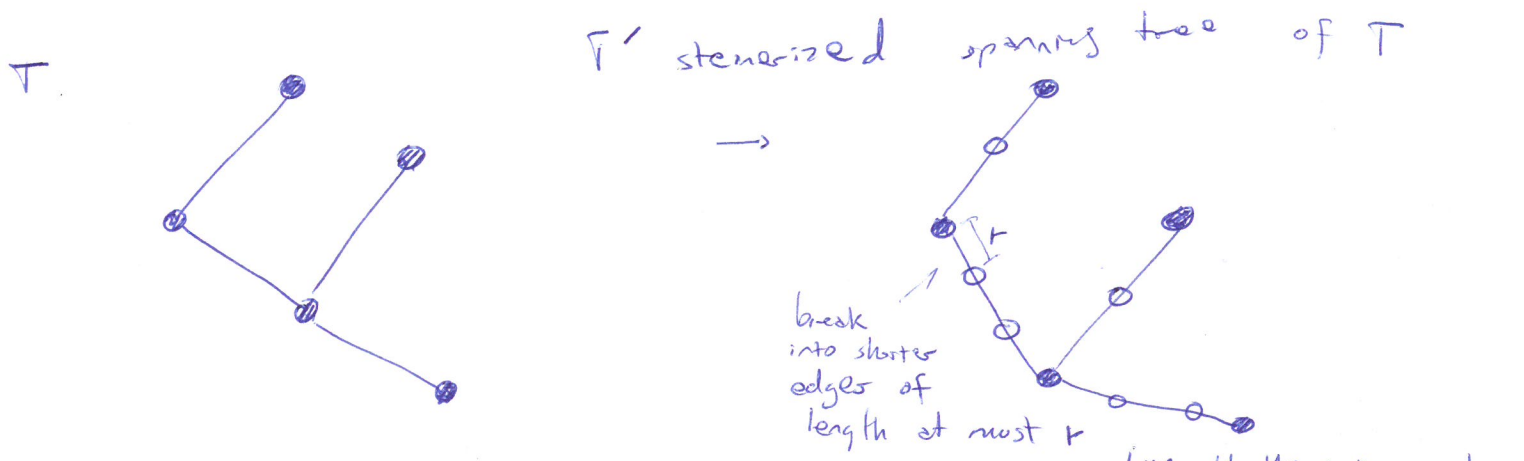 T
T' stenerized spanning tree of T
→
r
break
into shorter
edges of
length at most r